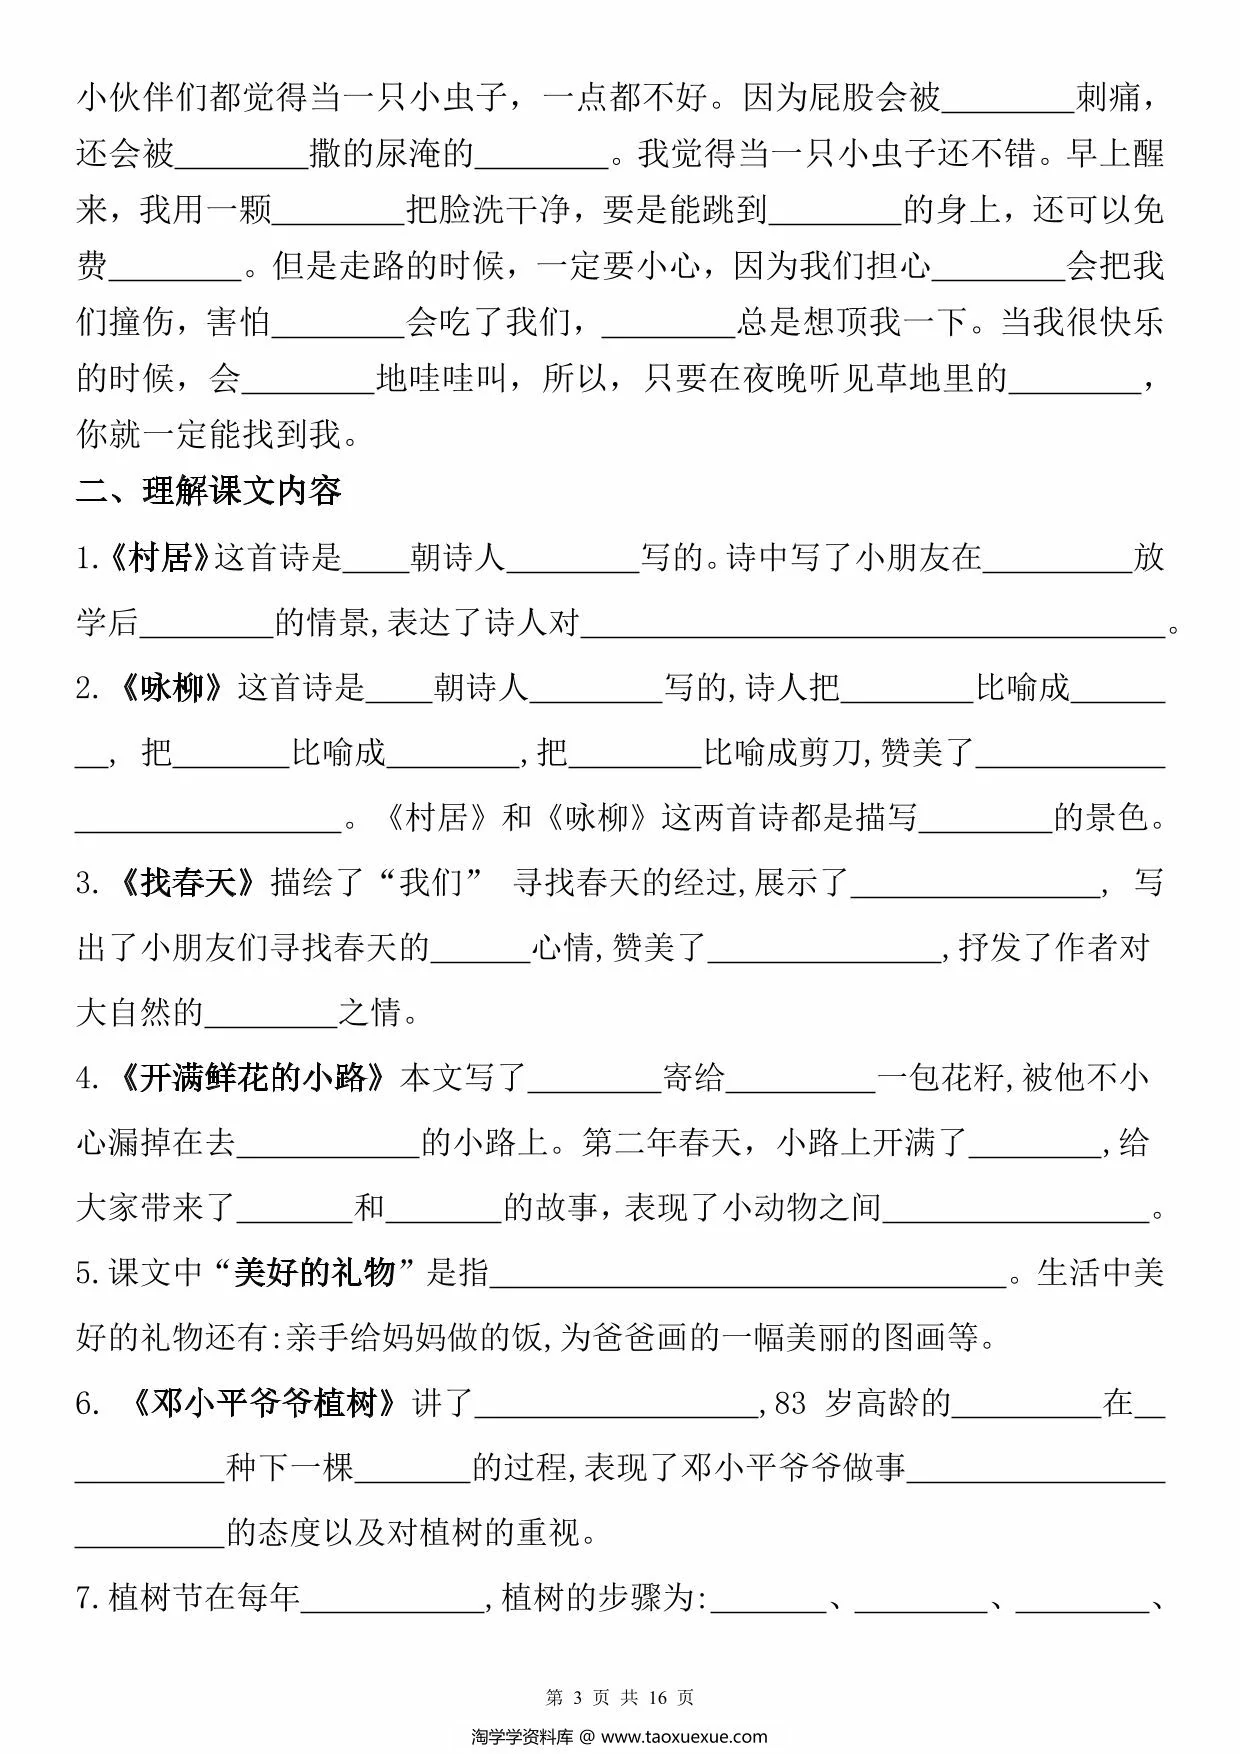 小伙伴们都觉得当一只小虫子，一点都不好。因为屁股会被________刺痛，
还会被________撒的尿淹的________。我觉得当一只小虫子还不错。早上醒
来，我用一颗________把脸洗干净，要是能跳到________的身上，还可以免
费________。但是走路的时候，一定要小心，因为我们担心________会把我
们撞伤，害怕________会吃了我们，________总是想顶我一下。当我很快乐
的时候，会________地哇哇叫，所以，只要在夜晚听见草地里的________，
你就一定能找到我。
二、理解课文内容
1.《村居》这首诗是____朝诗人________写的。诗中写了小朋友在_________放
学后________的情景,表达了诗人对___________________________________。
2.《咏柳》这首诗是____朝诗人________写的,诗人把________比喻成______
__, 把_______比喻成________,把________比喻成剪刀,赞美了____________
________________。《村居》和《咏柳》这两首诗都是描写________的景色。
3.《找春天》描绘了“我们” 寻找春天的经过,展示了_______________, 写
出了小朋友们寻找春天的______心情,赞美了______________,抒发了作者对
大自然的________之情。
4.《开满鲜花的小路》本文写了________寄给_________一包花籽,被他不小
心漏掉在去___________的小路上。第二年春天，小路上开满了________,给
大家带来了_______和_______的故事，表现了小动物之间________________。
5.课文中“美好的礼物”是指_______________________________。生活中美
好的礼物还有:亲手给妈妈做的饭,为爸爸画的一幅美丽的图画等。
6. 《邓小平爷爷植树》讲了_________________,83 岁高龄的_________在__
_________种下一棵_______的过程,表现了邓小平爷爷做事________________
_________的态度以及对植树的重视。
7.植树节在每年___________,植树的步骤为:_______、________、________、
第 3 页 共 16 页
淘学学资料库 @ www.taoxuexue.com